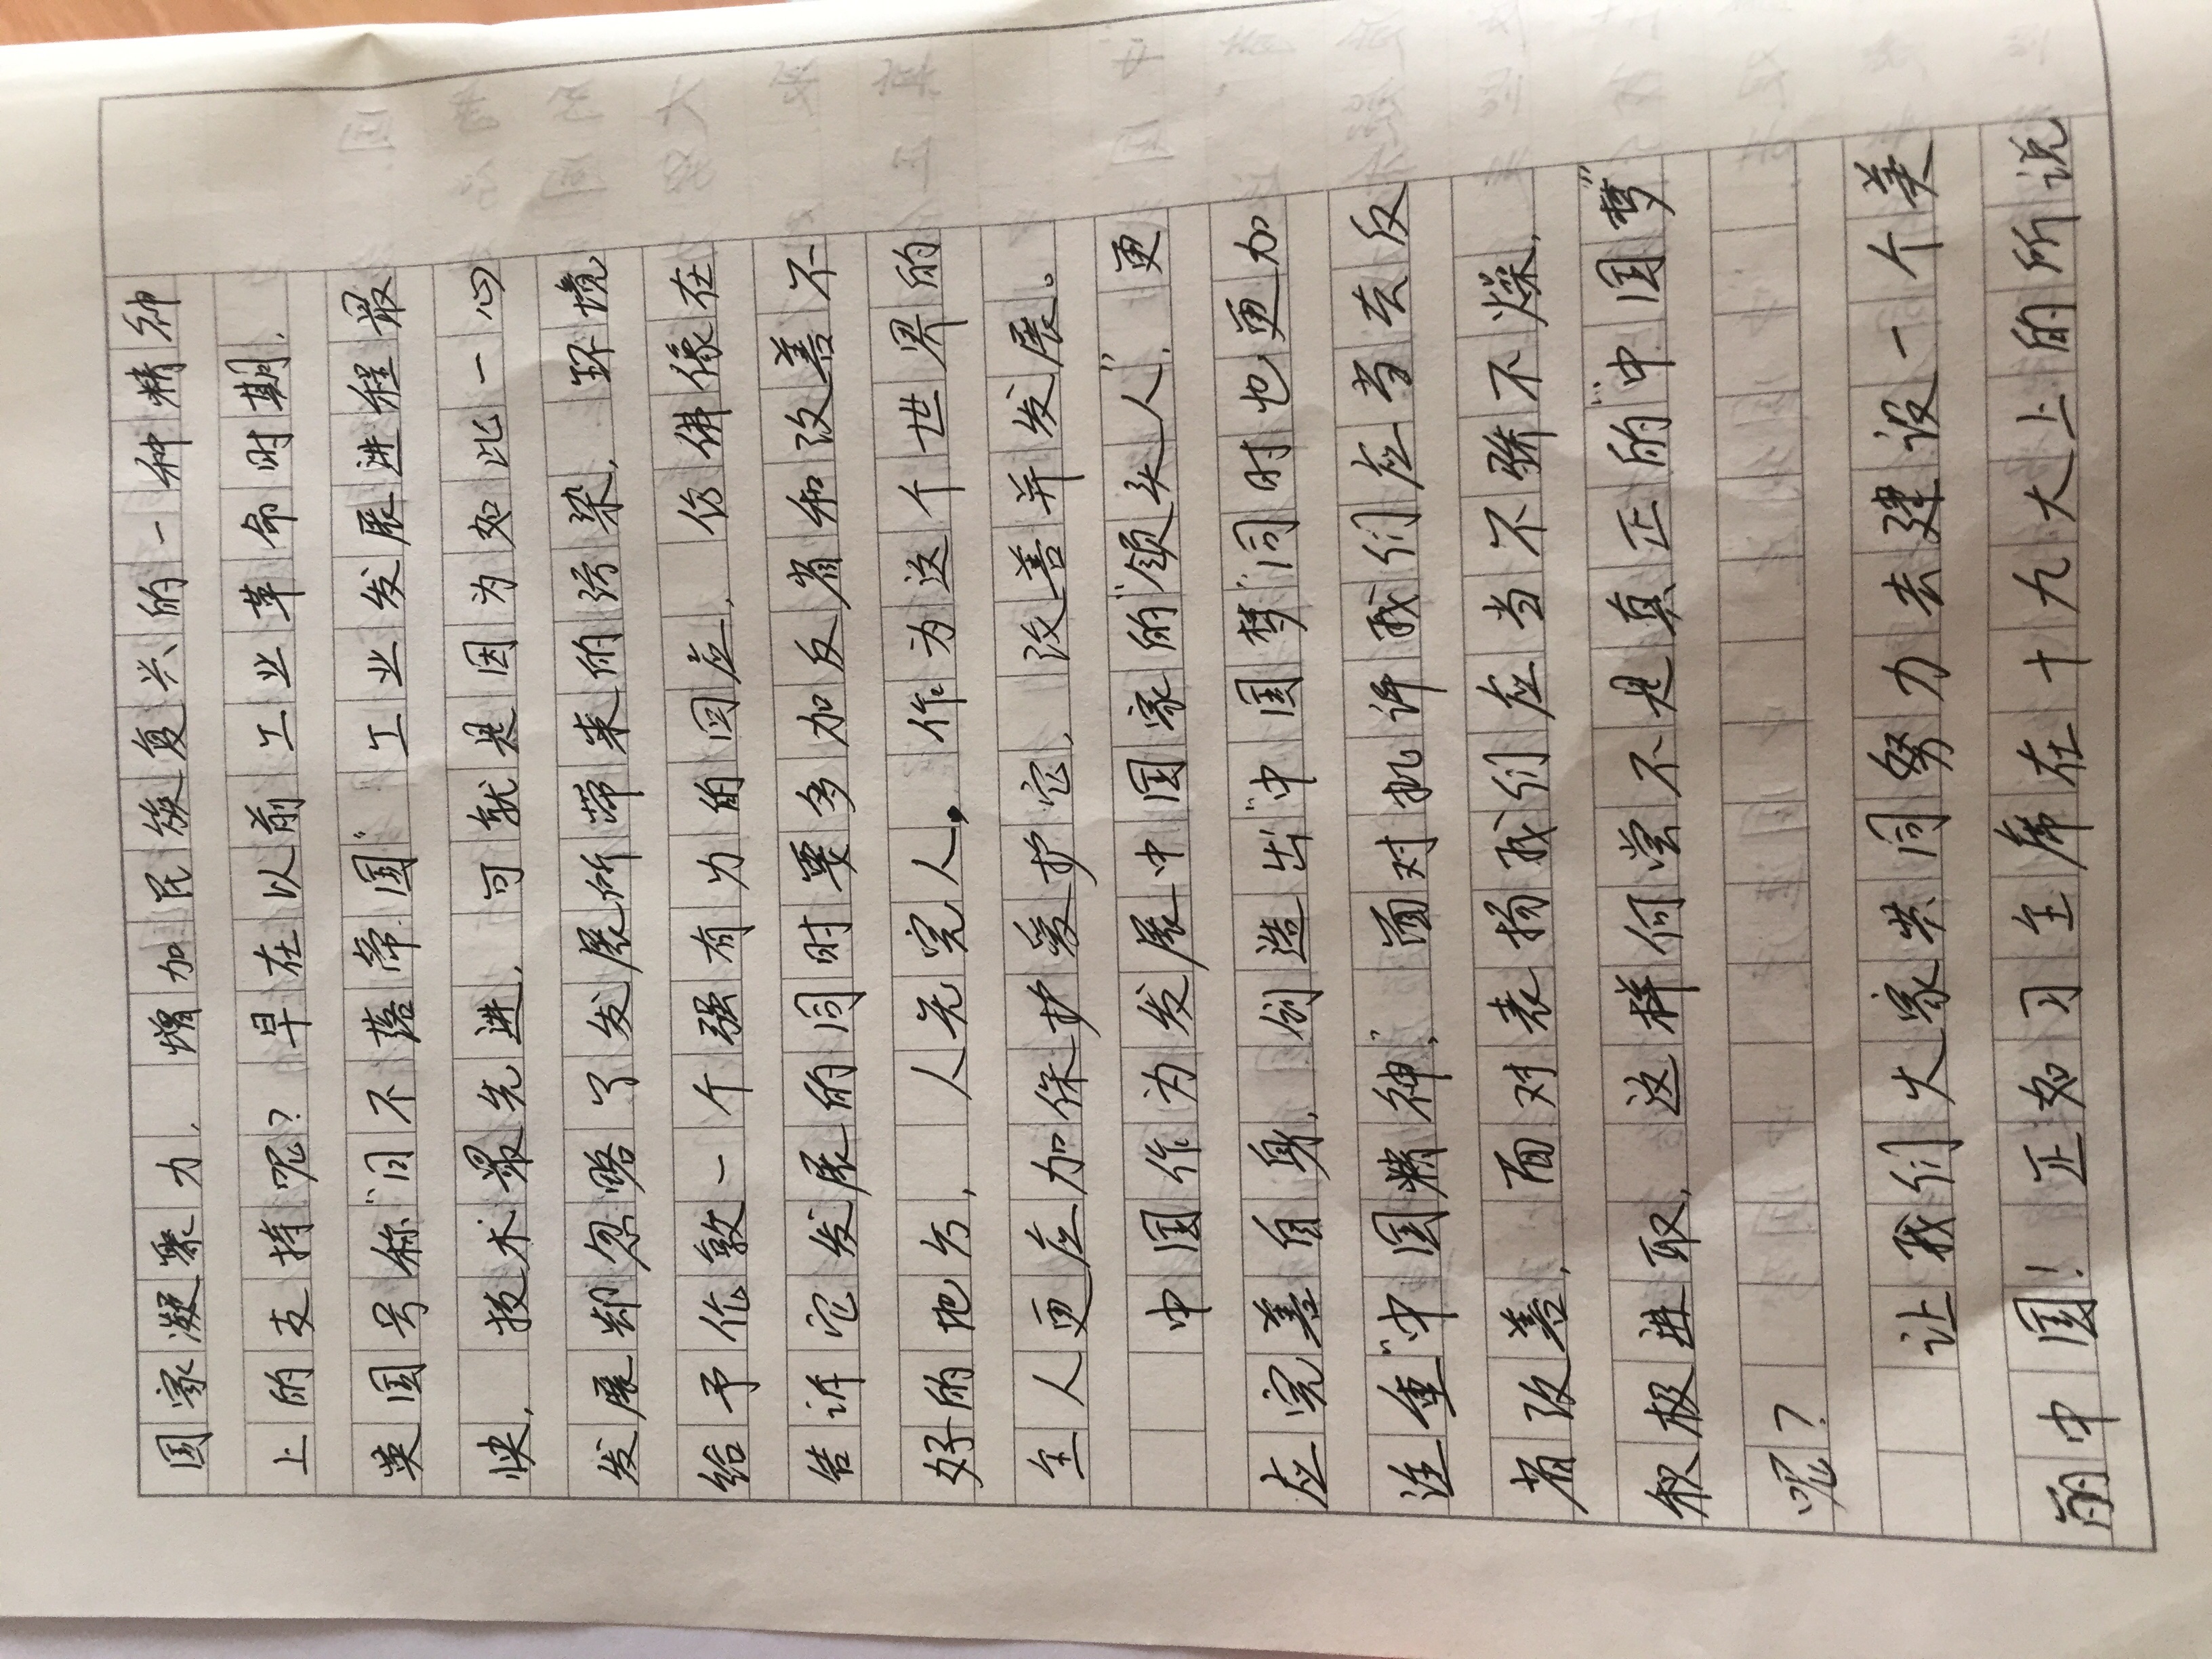 国家凝聚力，增加民族复兴的一种精神
上的支持呢？早在以前工业革命时期，
英国号称“日不落帝国”工业发展进程最
快，技术最先进，可就是因为如此一心
发展却忽略了发展所带来的污染，环境
给予作敦一个强有力的回应，仿佛像在
告诉它发展的同时要多加反省和改善不
好的地方，人无完人，作为这个世界的
主人更应加保护爱护它，改善并发展。
中国作为发展中国家的“领头人”，更
应完善自身，创造出“中国梦”同时也更加
注重“中国精神”，面对批评我们应当去反
省改善，面对表扬我们应当不骄不燥，
积极进取，这样何尝不是真正的“中国梦”
呢？
让我们大家共同努力去建设一个美
丽中国！正如习主席在十九大上的所说